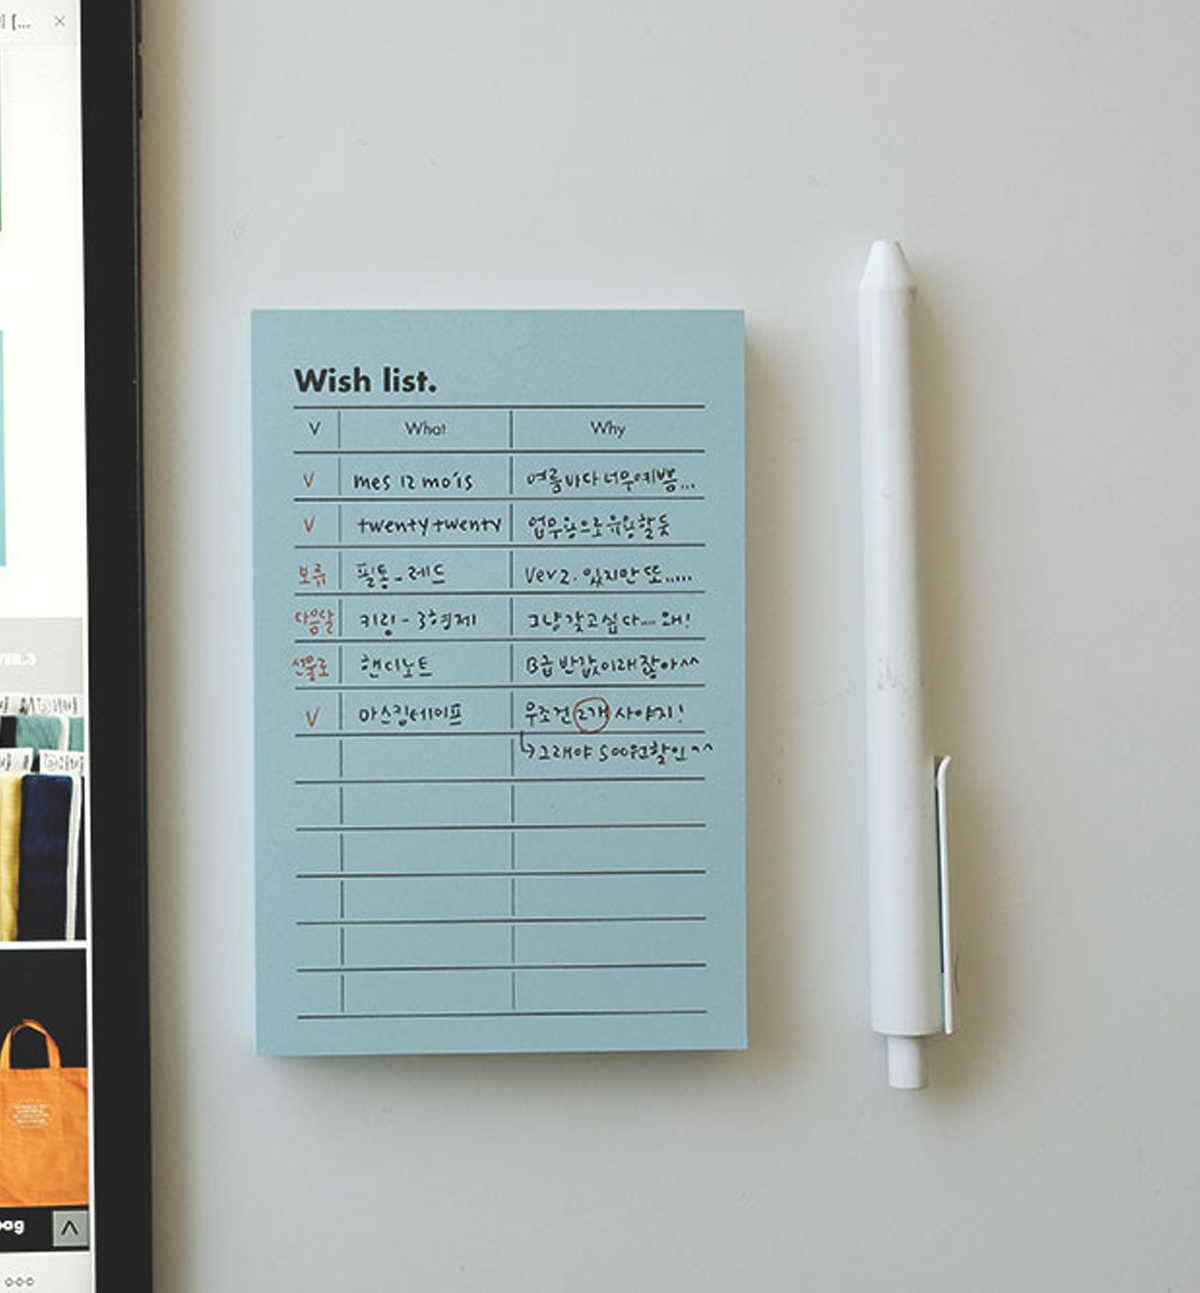 [...
VER.3
bag
Wish list.
V What Why
V mes 12 mois 여름바다 너무예쁨...
V twenty twenty 업무용으로 유용할듯
보류 필통-레드 Ver 2. 있지만 또.....
다음달 키링-3형제 그냥 갖고싶다.... 왜!
선물로 핸디노트 B급 반값이래잖아^^
V 마스킹테이프 무조건 2개 사야지!
↳그래야 500원할인^^